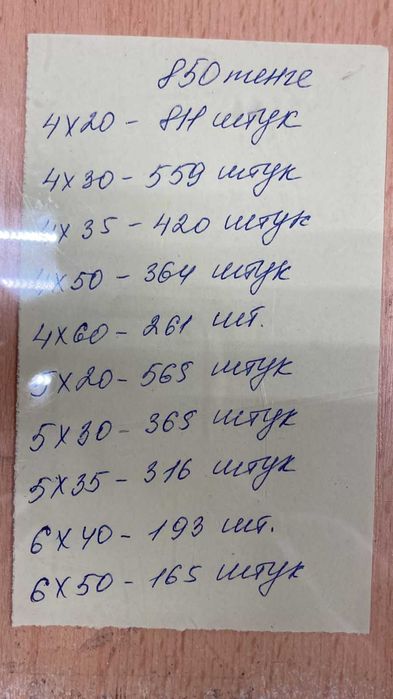 850 тенге
4х20 - 811 штук
4х30 - 559 штук
4х35 - 420 штук
4х50 - 364 штук
4х60 - 261 шт.
5х20 - 565 штук
5х30 - 365 штук
5х35 - 316 штук
6х40 - 193 шт.
6х50 - 165 штук